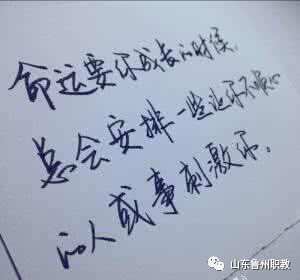 命运要你成长的时候,
总会安排一些让你不顺心
的人或事刺激你。
山东鲁州职教